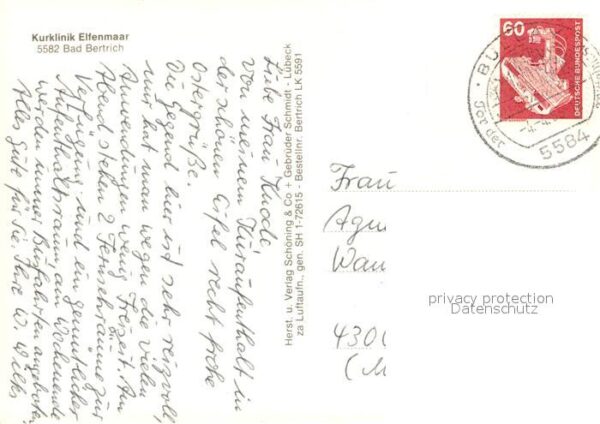 Kurklinik Elfenmaar
5582 Bad Bertrich
Liebe Frau Knode,
von meinem Kuraufenthalt in
der schönen Eifel recht frohe
Ostergrüße.
Die Gegend hier ist sehr reizvoll,
nur hat man wegen die vielen
Anwendungen wenig Freizeit. Am
Abend stehen 2 Fernsehräume zur
Verfügung und ein gemütlicher
Aufenthaltsraum am Wochenende
werden immer Busfahrten angeboten.
Alles Gute für Sie, Ihre W. Wilks
Herst. u. Verlag Schöning & Co + Gebrüder Schmidt - Lübeck
za Luftaufn., gen. SH 1-72615 - Bestellnr. Bertrich LK 5591
60
DEUTSCHE BUNDESPOST
BU
Tor der
5584
Frau
Agn
Wan
4300
(M
privacy protection
Datenschutz